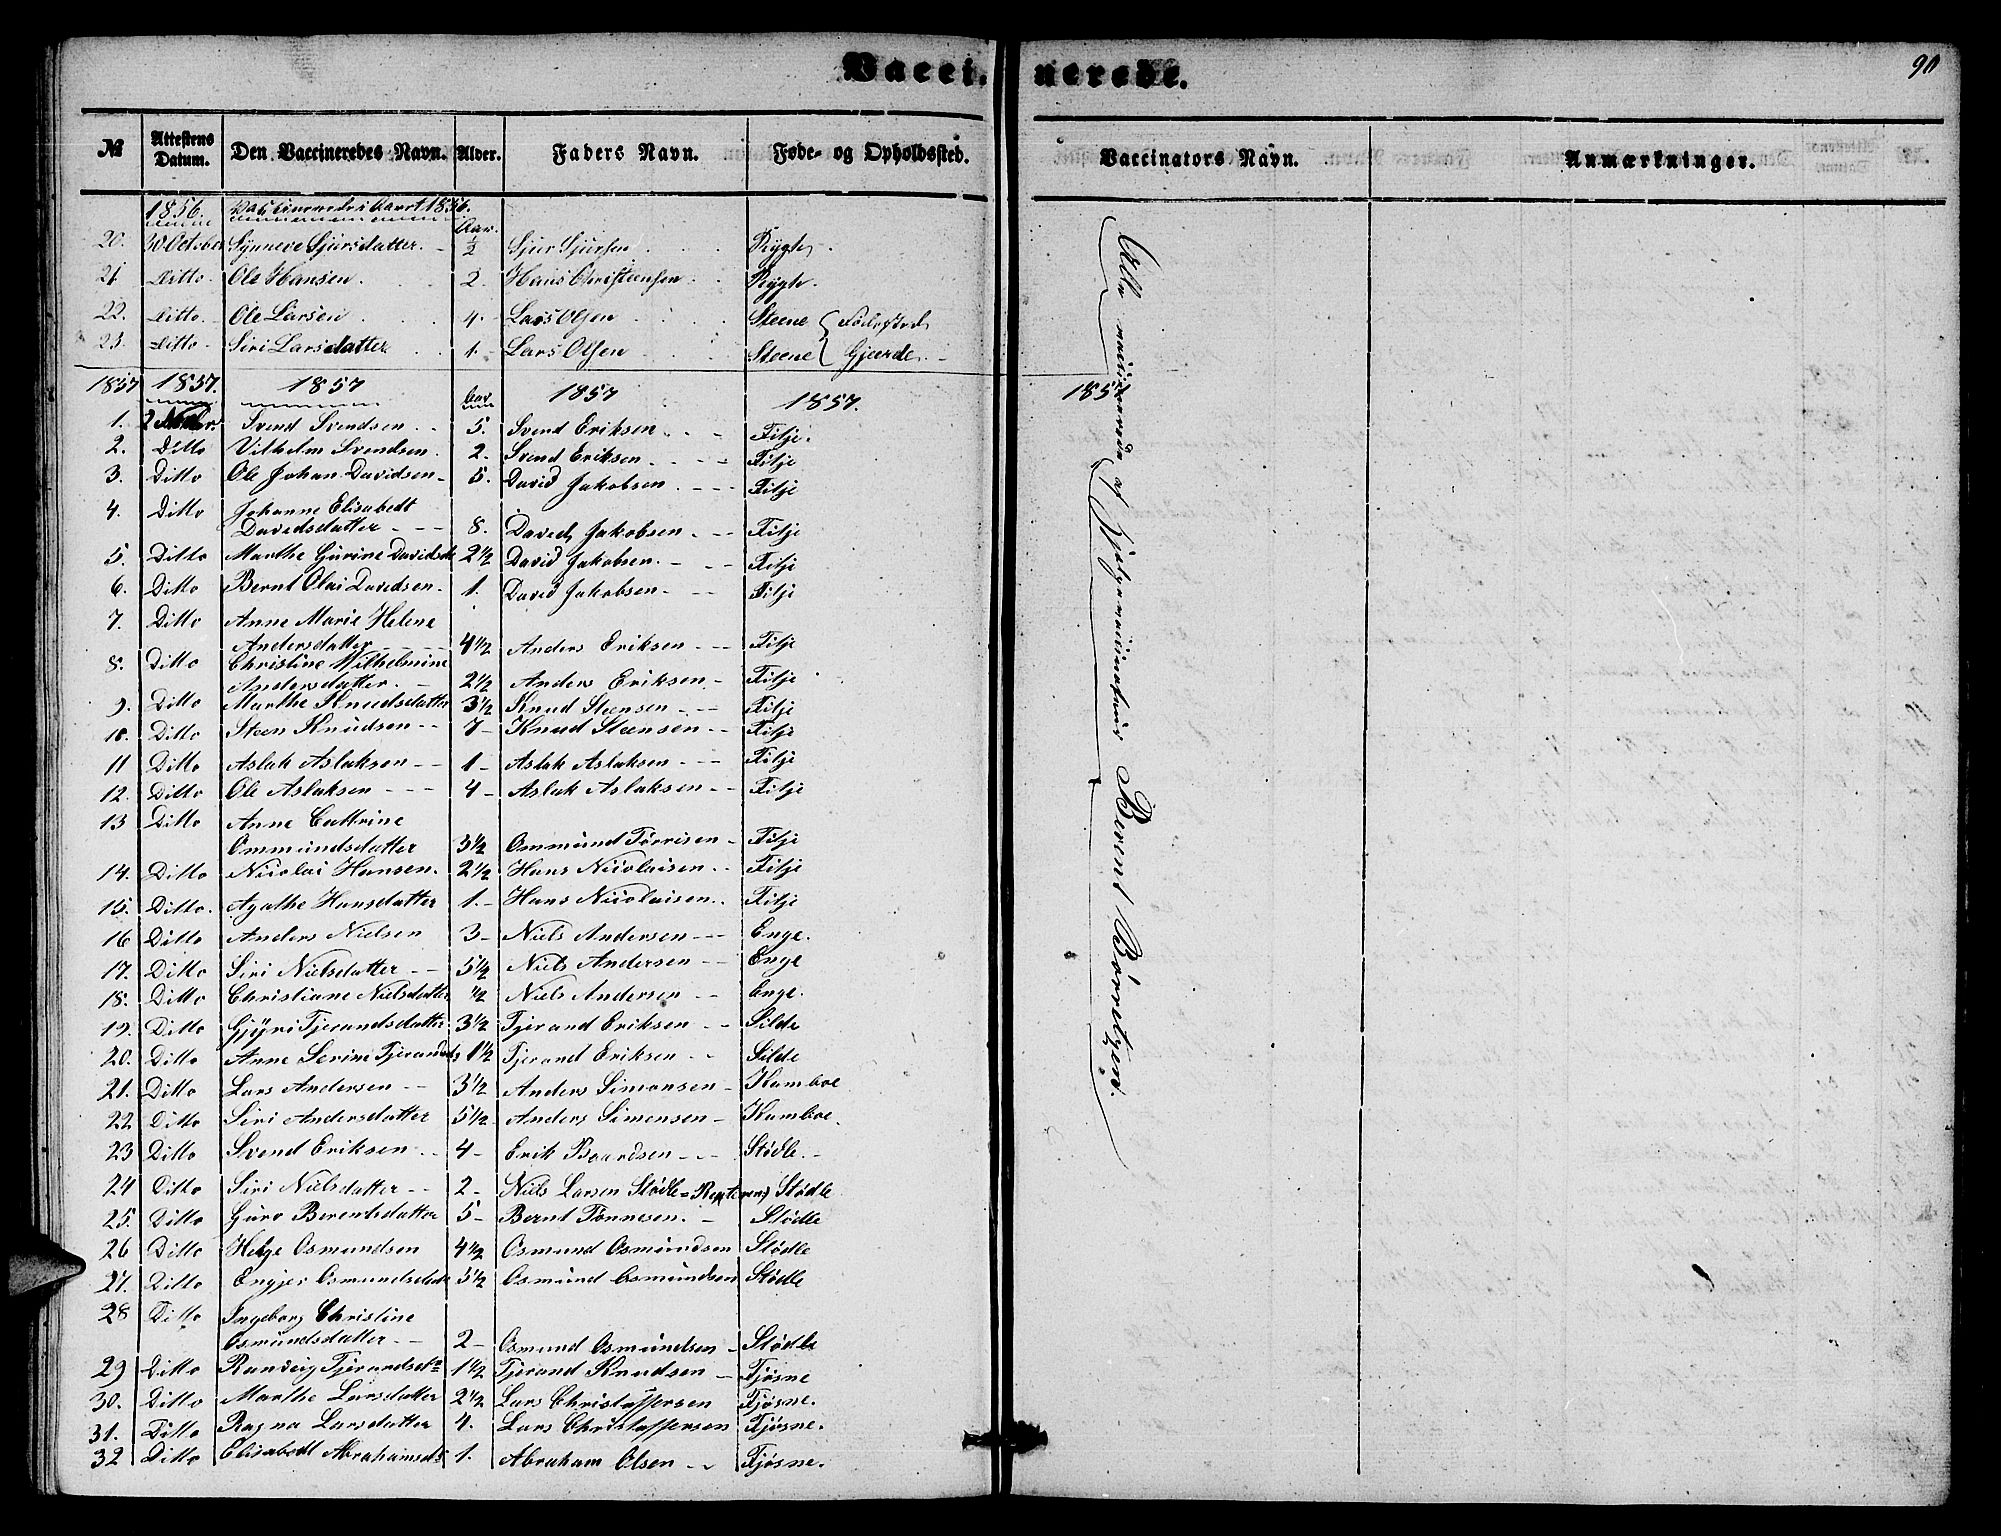 Vacci- nerede.
90
№ Attestens Datum. Den Vaccineredes Navn. Alder. Faders Navn. Føde- og Opholdssted. Vaccinators Navn. Anmærkninger.
1856. Vaccinerede i Aaret 1856.
Aar.
20. 30 October Synneve Sjursdatter. ½ Sjur Sjursen Rygh.
21 Ditto. Ole Hansen. 2. Hans Christensen Rygh.
22. Ditto. Ole Larsen 4. Lars Olsen Steene Fødested
23. Ditto. Siri Larsdatter 1. Lars Olsen Steene Gjerde
1857 1857. 1857 Aar 1857 1857. 1857
1. Svend Svendsen 5. Svend Eriksen Fitje.
2. Ditto Vilhelm Svendsen. 2. Svend Eriksen Fitje
3. Ditto Ole Johan Davidsen 5. David Jakobsen Fitje
4. Ditto Johanne Elisabedt
Davidsdatter 8. David Jakobsen Fitje
5. Ditto Marthe Gurine Davidsdt 2½ David Jakobsen. Fitje
6. Ditto Bernt Olai Davidsen 1. David Jakobsen Fitje
7. Ditto Anne Marie Helene
Andersdatter 4½ Anders Eriksen Fitje
8. Ditto Christine Wilhelmine
Andersdatter. 2½ Anders Eriksen Fitje
9. Ditto Marthe Knudsdatter 3½ Knud Steensen Fitje
10. Ditto Steen Knudsen 7 Knud Steensen Fitje
11 Ditto Aslak Aslaksen 1 Aslak Aslaksen Fitje
12. Ditto Ole Aslaksen 4 Aslak Aslaksen Fitje
13 Ditto Anne Cattrine
Ommundsdatter 3½ Ommund Tørrisen Fitje
14. Ditto Nicolai Hansen. 2½ Hans Nicolaisen Fitje
15. Ditto. Agathe Hansdatter 1. Hans Nicolaisen Fitje
16 Ditto Anders Nielsen 3 Niels Andersen Enge.
17. Ditto Siri Nielsdatter 5½ Niels Andersen Enge
18. Ditto Christiane Nielsdatter ½ Niels Andersen Enge.
19. Ditto Gjyri Tjerandsdatter 3½ Tjerand Eriksen Silde
20. Ditto Anne Serine Tjerandsd 1½ Tjerand Eriksen Silde
21. Ditto Lars Andersen 3½ Anders Simonsen Hamboe
22 Ditto Siri Andersdatter 5½ Anders Simensen Hamboe.
23 Ditto Svend Eriksen 4 Erik Baardsen Stødle.
24 Ditto Siri Nielsdatter 2 Niels Larsen Stødle Stødle
25. Ditto Guro Berentsdatter 5 Bernt Tønnesen. Stødle
26 Ditto Helge Osmundsen 4½ Osmund Osmundsen Stødle
27. Ditto Osmundsdatt 5½ Osmund Osmundsen Stødle
28 Ditto Ingeborg Christine
Osmundsdatter 2 Osmund Osmundsen Stødle
29 Ditto Randvig Tjerandsdtr 1½ Tjerand Knudsen Tjøsne
30. Ditto Marthe Larsdatter 2½ Lars Christoffersen Tjøsne.
31. Ditto Ragna Larsdatter 4. Lars Christoffersen Tjøsne.
32 Ditto Elisabedt Abrahamsd 1. Abraham Olsen Tjøsne.
Alle vaccinerede af Hjælpevaccinateur Berent Børretzen.